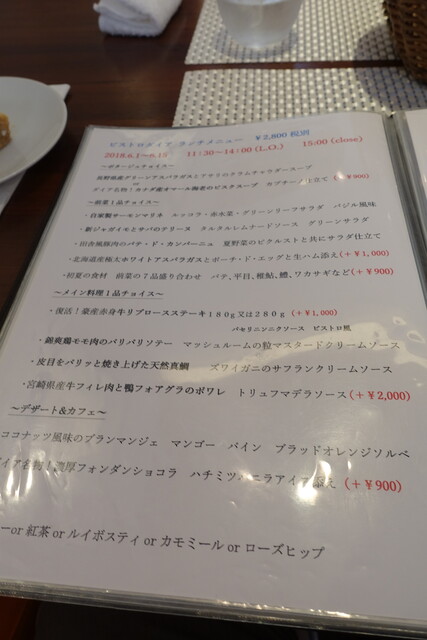 ビストロダイア ランチメニュー ￥2,800 税別
2018.6.1～6.15 11:30～14:00 (L.O.) 15:00 (close)
～ポタージュチョイス～
長野県産グリーンアスパラガスとアサリのクラムチャウダースープ
or
ダイア名物！カナダ産オマール海老のビスクスープ カプチーノ仕立て (+￥900)
～前菜1品チョイス～
・自家製サーモンマリネ ルッコラ・赤水菜・グリーンリーフサラダ バジル風味
・新ジャガイモとサバのテリーヌ タルタルレムナードソース グリーンサラダ
・田舎風豚肉のパテ・ド・カンパーニュ 夏野菜のピクルスと共にサラダ仕立て
・北海道産極太ホワイトアスパラガスとポーチ・ド・エッグと生ハム添え(+￥1,000)
・初夏の食材 前菜の7品盛り合わせ パテ、平目、稚鮎、鱧、ワカサギなど(+￥900)
～メイン料理1品チョイス～
・復活！豪産赤身牛リブロースステーキ180g又は280g (+￥1,000)
パセリニンニクソース ビストロ風
・錦爽鶏モモ肉のパリパリソテー マッシュルームの粒マスタードクリームソース
・皮目をパリッと焼き上げた天然真鯛 ズワイガニのサフランクリームソース
・宮崎県産牛フィレ肉と鴨フォアグラのポワレ トリュフマデラソース(+￥2,000)
～デザート&カフェ～
ココナッツ風味のブランマンジェ マンゴー パイン ブラッドオレンジソルベ
イア名物！濃厚フォンダンショコラ ハチミツバニラアイス添え(+￥900)
ーor 紅茶 or ルイボスティ or カモミール or ローズヒップ